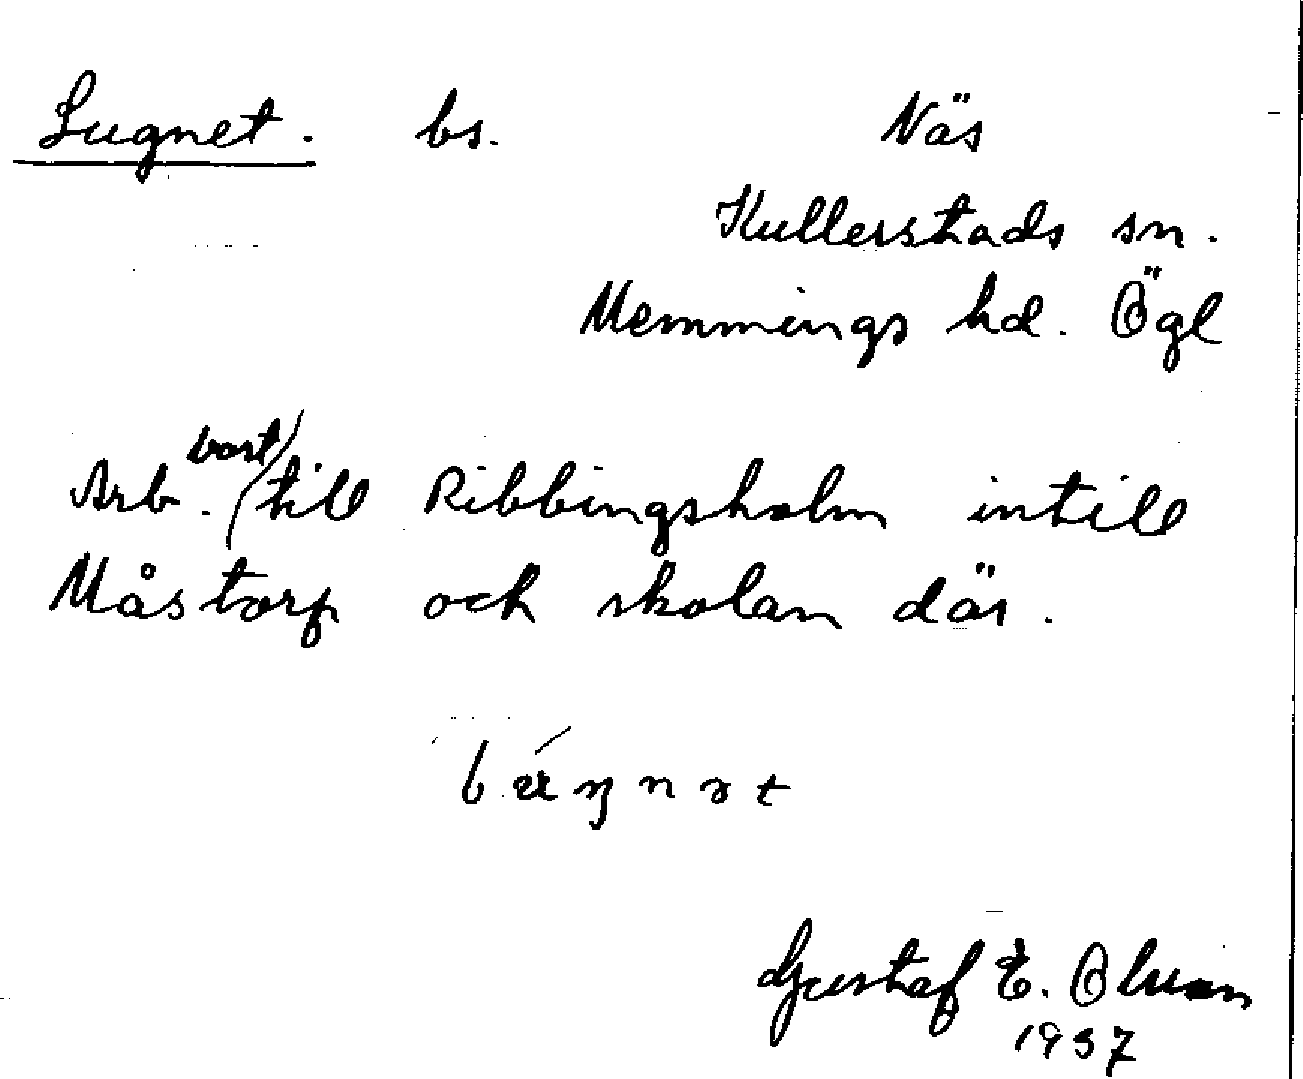 Lugnet. bs. Näs
Kullerstads sn.
Memmings hd. Ögl
Arb. bost/till Ribbingsholm intill
Måstorp och skolan där.
Gustaf E. Olsson
1937